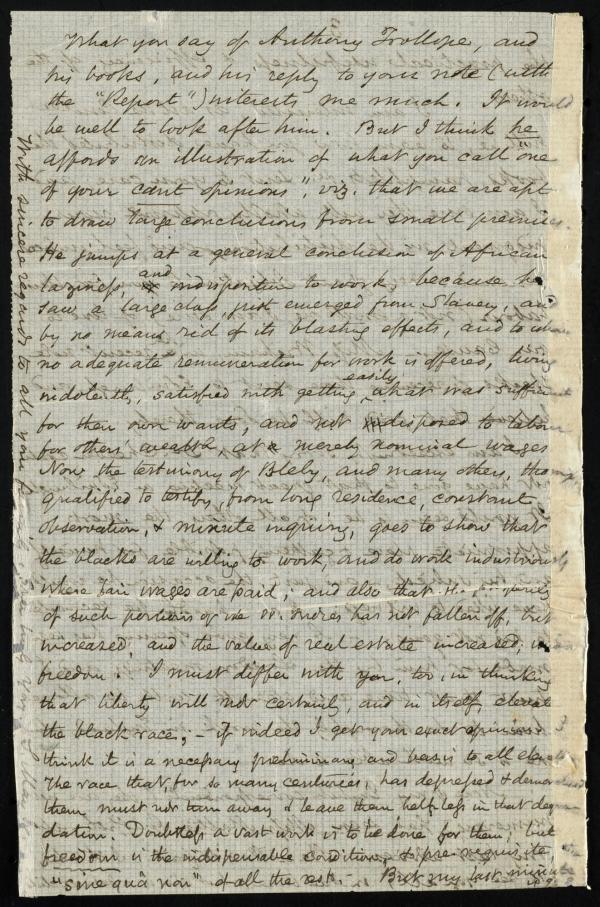 What you say of Anthony Trollope, and
his books, and his reply to your note (with
the "Report") interests me much. It would
be well to look after him. But I think he
affords an illustration of what you call "one
of your cant opinions", viz. that we are apt
to draw large conclusions from small premises.
He jumps at a general conclusion of African
laziness, and indisposition to work, because he
saw a large class, just emerged from Slavery, and
by no means rid of its blasting effects, and to whom
no adequate remuneration for work is offered, living
indolently, satisfied with getting easily what was sufficient
for their own wants, and not disposed to labour
for others' wealth, at merely nominal wages
Now the testimony of Bleby, and many others,
qualified to testify, from long residence, constant
observation, & minute inquiry, goes to show that
the blacks are willing to work, and do work industriously
where fair wages are paid; and also that
of such portions of the W. Indies has not fallen off, but
increased, and the value of real estate increased, in
freedom. I must differ with you, too, in thinking
that liberty will not certainly, and in itself, elevate
the black race; – if indeed I get your exact opinion. I
think it is a necessary preliminary and basis to all
The race that, for so many centuries, has depressed &
them must not turn away & leave them helpless in that degra-
dation. Doubtless a vast work is to be done for them, but
freedom is the indispensable condition, & pre-requisite,
"sine quâ non" of all the rest. – But my last minute
With sincere regards to all your